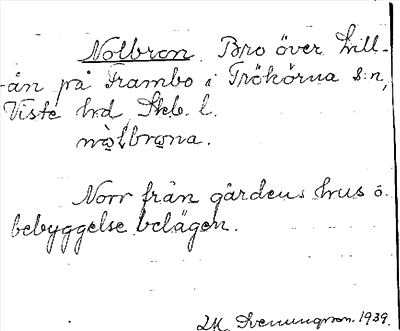 Nolbron. Bro över Lill-
-ån på Frambo i Trökörna s:n,
Viste hd, Skb. l.
nòlbrona.
Norr från gårdens hus o.
bebyggelse belägen.
1939.